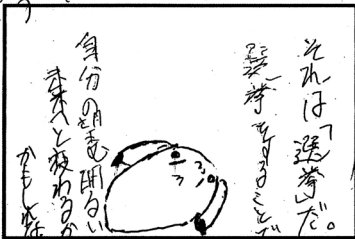 それは「選挙」だ。
選挙をすることで
自分の望む明るい
未来へと変わるか
かもしれな